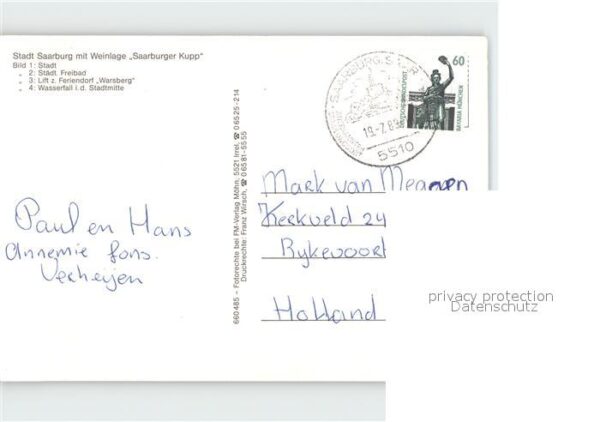 Stadt Saarburg mit Weinlage „Saarburger Kupp"
Bild 1: Stadt
„ 2: Städt. Freibad
„ 3: Lift z. Feriendorf „Warsberg"
„ 4: Wasserfall i.d. Stadtmitte
Paul en Hans
Annemie fons.
Verheijen
660485 - Fotorechte bei FM-Verlag Möhn, 5521 Irrel, ☎ 06525-214
Druckrechte: Franz Wirsch, ☎ 06581-5555
SAARBURG, SAAR
5510
60
DEUTSCHE BUNDESPOST
BAVARIA MÜNCHEN
Mark van
Kerkveld 24
Rykevoort
Holland
privacy protection
Datenschutz